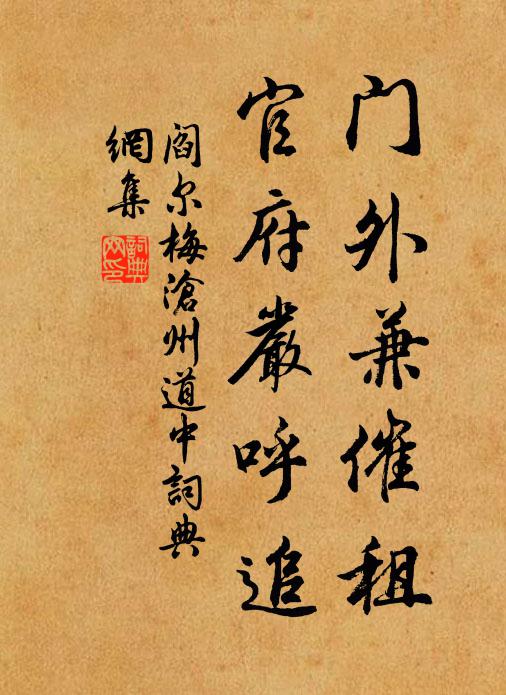 门外兼催租
官府嚴呼追
阎尔梅滄州道中詞典
網集
詞典
网印